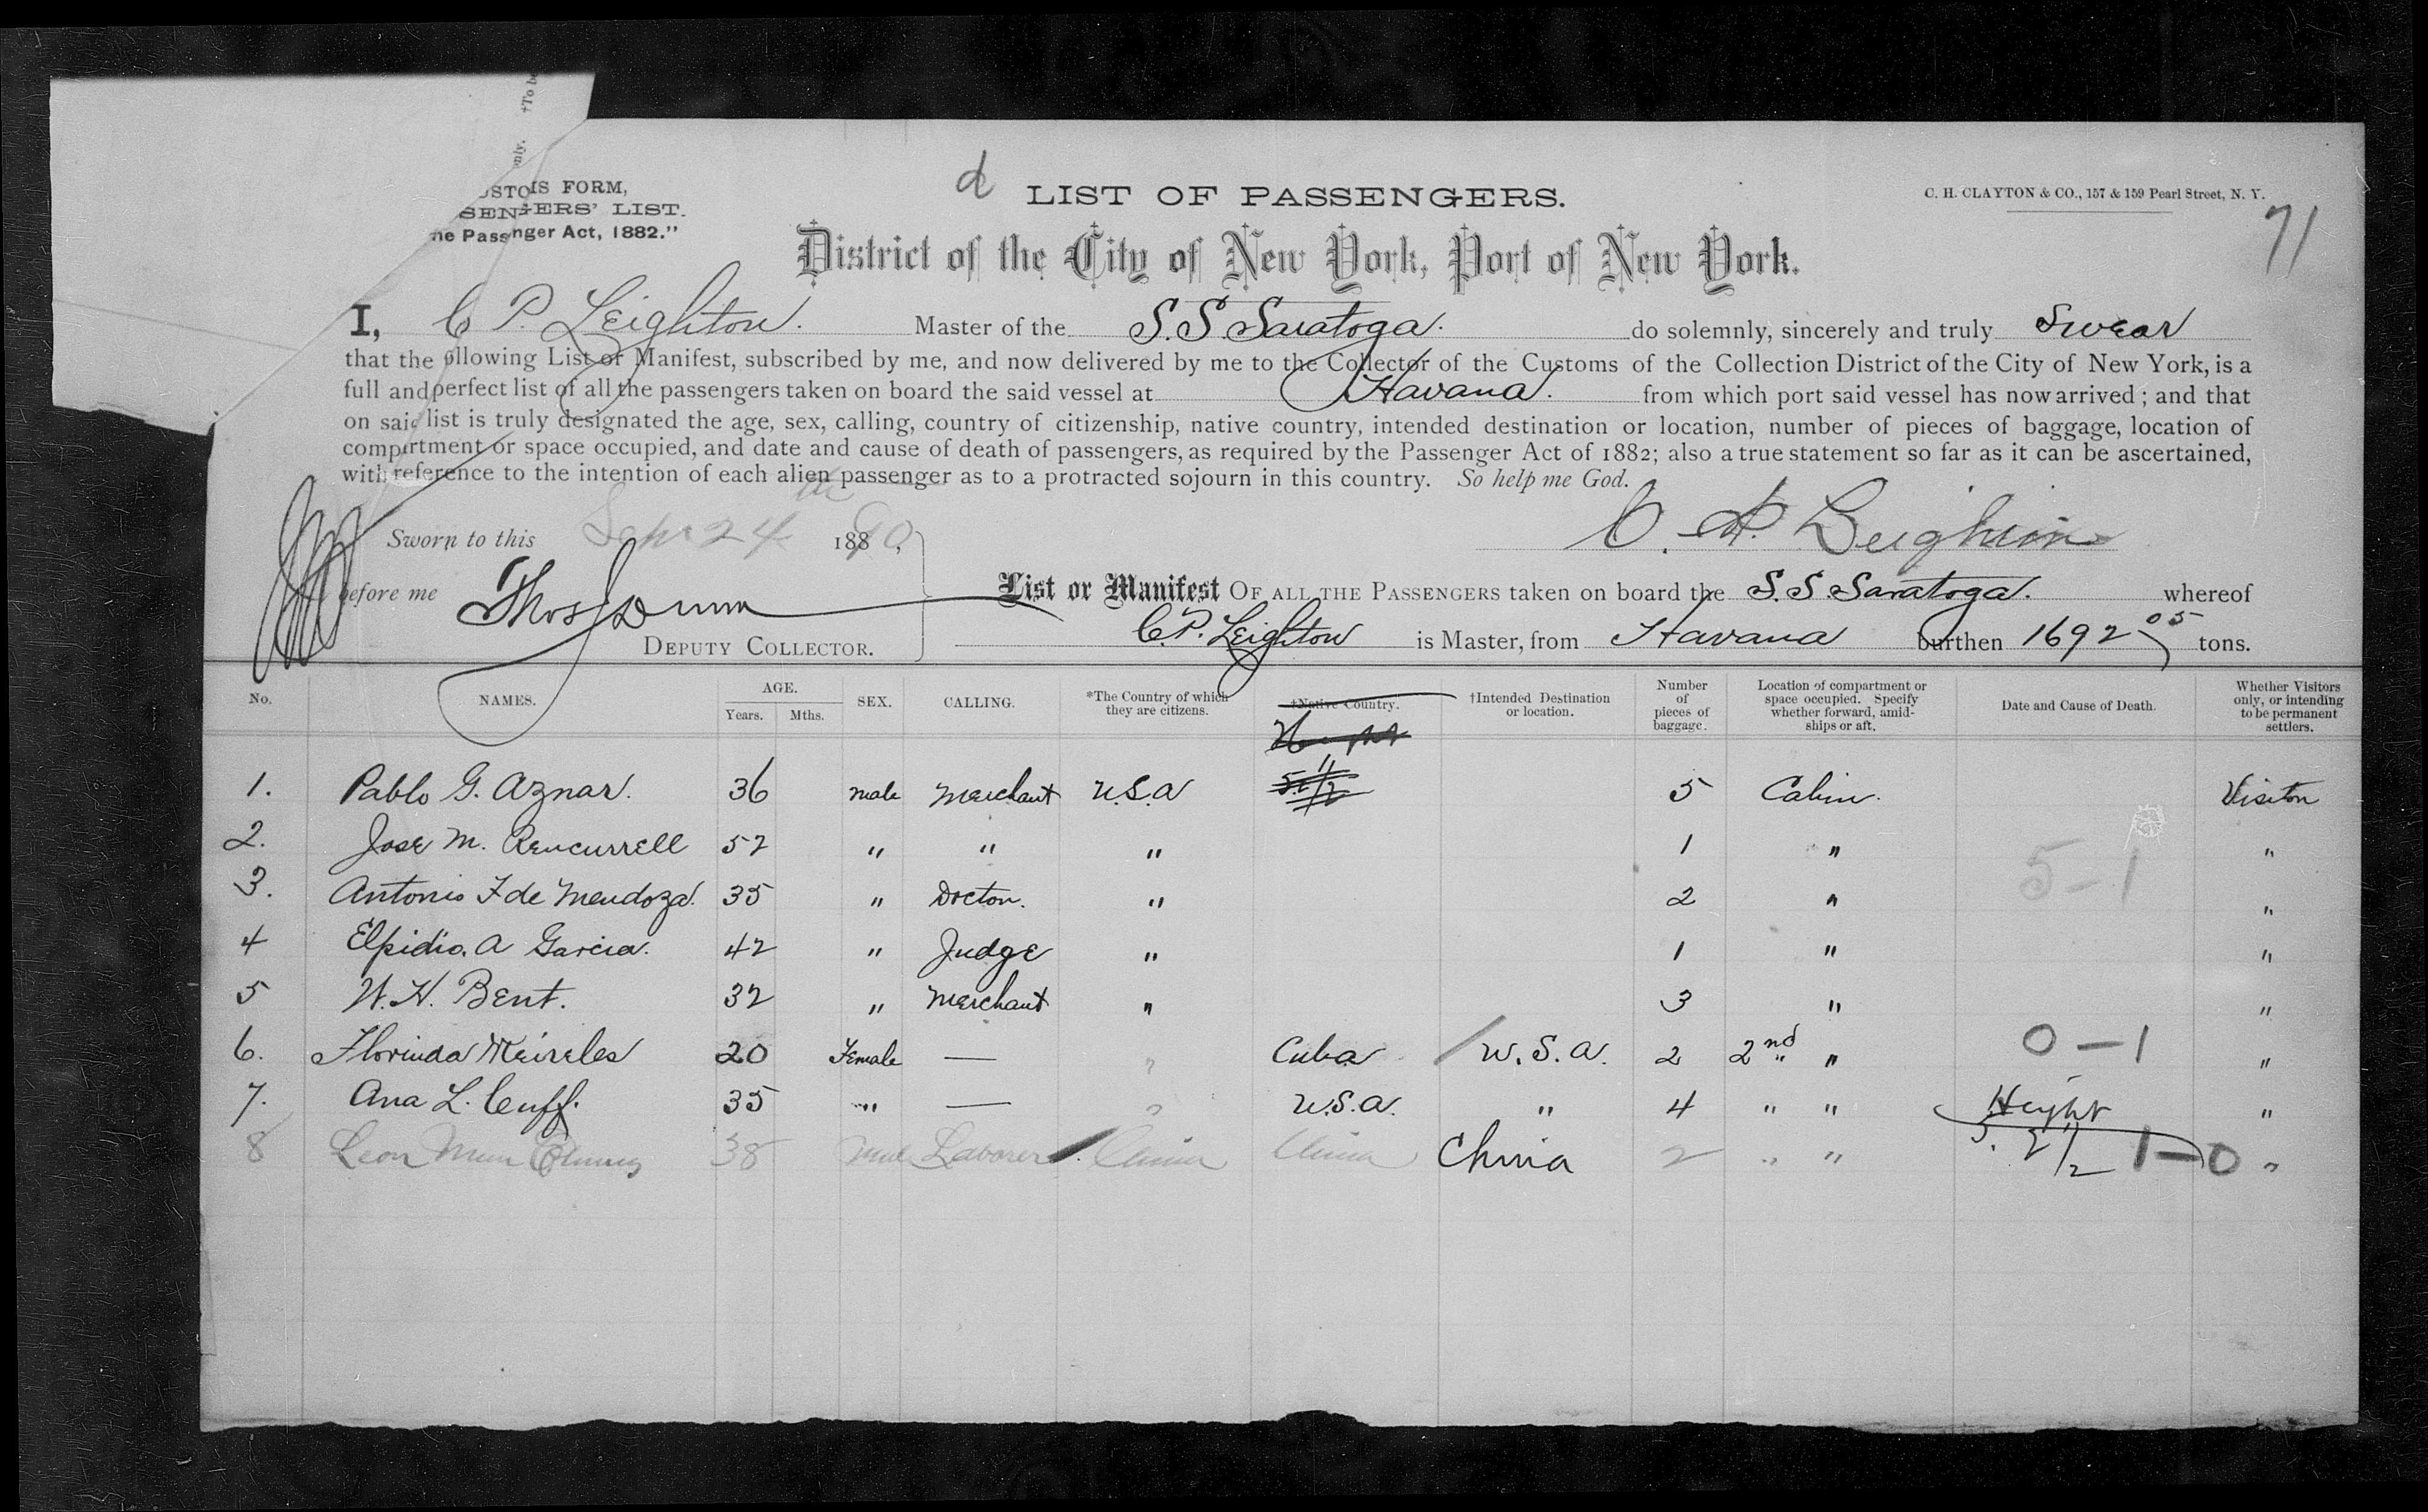 †To be
only.
USTOMS FORM,
SENGERS' LIST.
he Passenger Act, 1882."
d
LIST OF PASSENGERS.
C. H. CLAYTON & CO., 157 & 159 Pearl Street, N. Y.
71
District of the City of New York, Port of New York.
I, C P. Leighton. Master of the S.S Saratoga. do solemnly, sincerely and truly Swear
that the ollowing List or Manifest, subscribed by me, and now delivered by me to the Collector of the Customs of the Collection District of the City of New York, is a
full and perfect list of all the passengers taken on board the said vessel at Havana. from which port said vessel has now arrived; and that
on said list is truly designated the age, sex, calling, country of citizenship, native country, intended destination or location, number of pieces of baggage, location of
compartment or space occupied, and date and cause of death of passengers, as required by the Passenger Act of 1882; also a true statement so far as it can be ascertained,
with reference to the intention of each alien passenger as to a protracted sojourn in this country. So help me God.
Sworn to this 24th 1890, C. P. Leighton
before me Thos Dunn
List or Manifest OF ALL THE PASSENGERS taken on board the S.S. Saratoga. whereof
DEPUTY COLLECTOR. C.P. Leighton is Master, from Havana burthen 1692 05 tons.
No. NAMES. AGE. Years. Mths. SEX. CALLING. *The Country of which they are citizens. †Native Country. †Intended Destination or location. Number of pieces of baggage. Location of compartment or space occupied. Specify whether forward, amidships or aft. Date and Cause of Death. Whether Visitors only, or intending to be permanent settlers.
Height
1. Pablo G. Aznar. 36 male Merchant U.S.A 5 Cabin. Visitor
2. Jose M. Rencurrell 52 " " " 1 " "
5-1
3. Antonio F de Mendoza. 35 " Doctor. " 2 " "
4 Elpidio. A Garcia. 42 " Judge " 1 " "
5 W. H. Bent. 32 " Merchant " 3 " "
6. Florinda Meireles 20 Female — " Cuba / U.S.A. 2 2nd " " 0-1 "
7. Ana L. Cuff. 35 " — " U.S.A. " 4 " " Height "
8 Leon 38 Male Laborer China China China 2 " " 5. 2 1/2 1-0 "